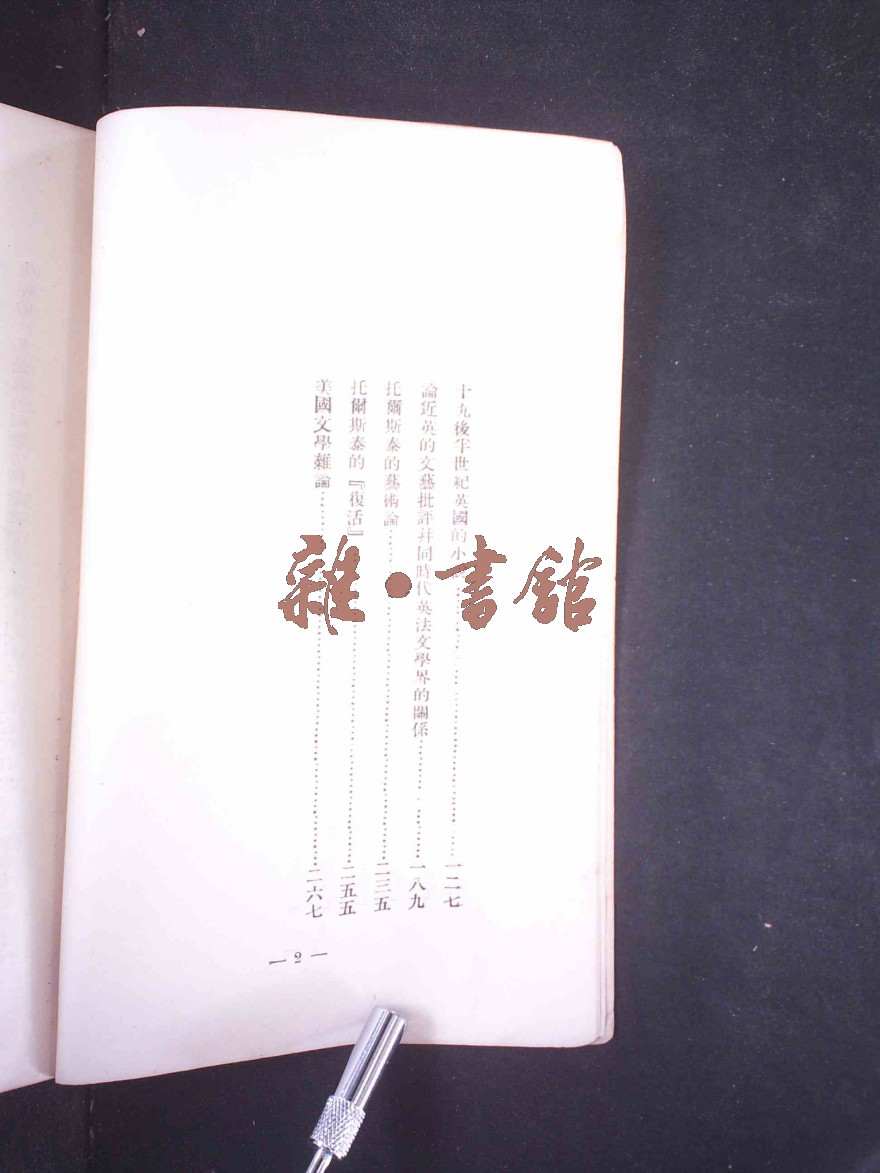 十九後半世紀英國的小⋯⋯一二七
論近英的文藝批評幷同時代英法文學界的關係⋯⋯一八九
托爾斯泰的藝術論⋯⋯二三五
托爾斯泰的『復活』⋯⋯二五五
美國文學雜論⋯⋯二六七
— 2 —
雜·書館